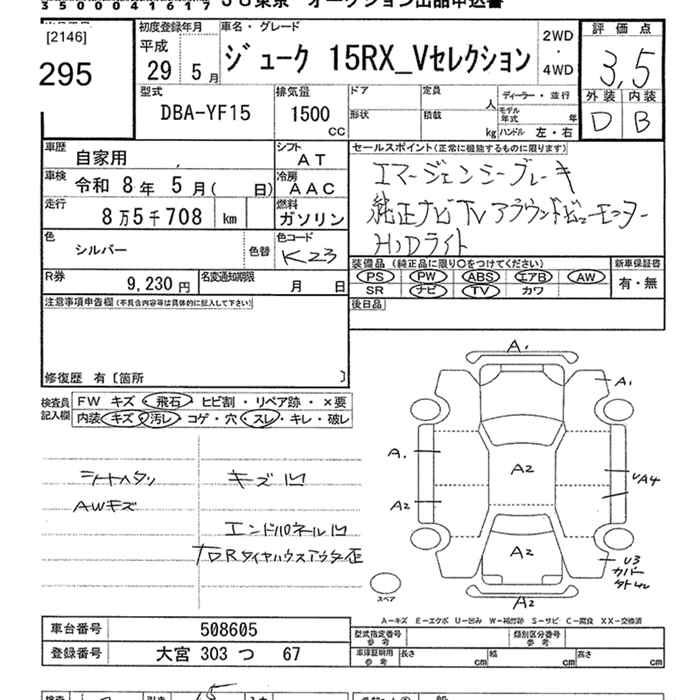 35000041617 JU東京 オークション出品申込書
[2146]
295
初度登録年月
平成
29 5月
車名・グレード
ジューク 15RX_Vセレクション
2WD
・
4WD
評価点
3,5
外装 内装
D B
型式
DBA-YF15
排気量
1500
CC
ドア
形状
定員
人
積載
kg
ディーラー・並行
モデル年式 年
ハンドル 左・右
車歴
自家用
シフト
AT
車検
令和 8年 5月( 日)
冷房
AAC
走行
8万5千708 km
燃料
ガソリン
色
シルバー
色替
色コード
K23
R券
9,230円
名変通知期限
月 日
セールスポイント(正常に機能するものに限ります)
エマージェンシーブレーキ
純正ナビTVアラウンドビューモニター
HIDライト
装備品(純正品に限り○をつけてください)
PS PW ABS エアB AW
SR ナビ TV カワ
新車保証書
有・無
後日品
注意事項申告欄(不具合内容等は具体的に記入して下さい)
修復歴 有〔箇所 〕
検査員記入欄
FW キズ・飛石・ヒビ割・リペア跡・×要
内装・キズ・汚レ・コゲ・穴・スレ・キレ・破レ
シートヘタリ
AWキズ
キズ凹
エンドパネル凹
RタイヤハウスアウターL歪
A1
A1
A1
A2
A2
A2
A2
UA4
U3
カバー
スペア
A−キズ E−エクボ U−凹み W−補修跡 S−サビ C−腐食 XX−交換済
車台番号 508605
登録番号 大宮 303 つ 67
型式指定番号
参考
類別区分番号
参考
車庫証明用
参考
長さ cm
幅 cm
高さ cm
15